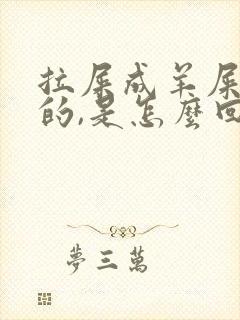 拉屎成羊屎
的,是怎麼回
夢三萬